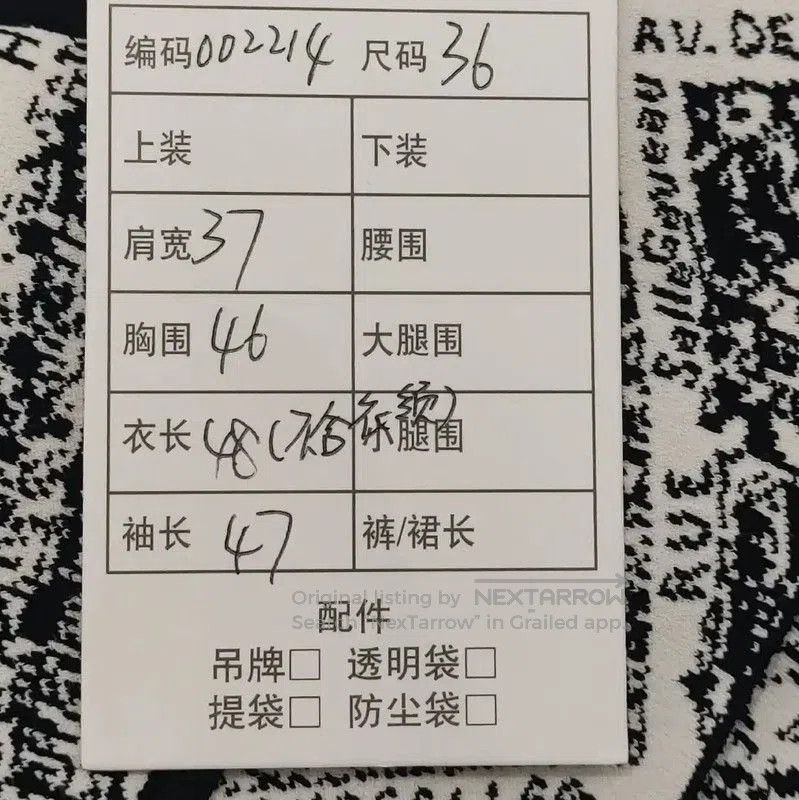 编码002214 尺码36
上装 下装
肩宽37 腰围
胸围46 大腿围
衣长48(不含 腿围
袖长47 裤/裙长
配件
吊牌□ 透明袋□
提袋□ 防尘袋□
Original listing by NEXTARROW
Search "NexTarrow" in Grailed app.
AV. DE
Salle Gaveau
RUE